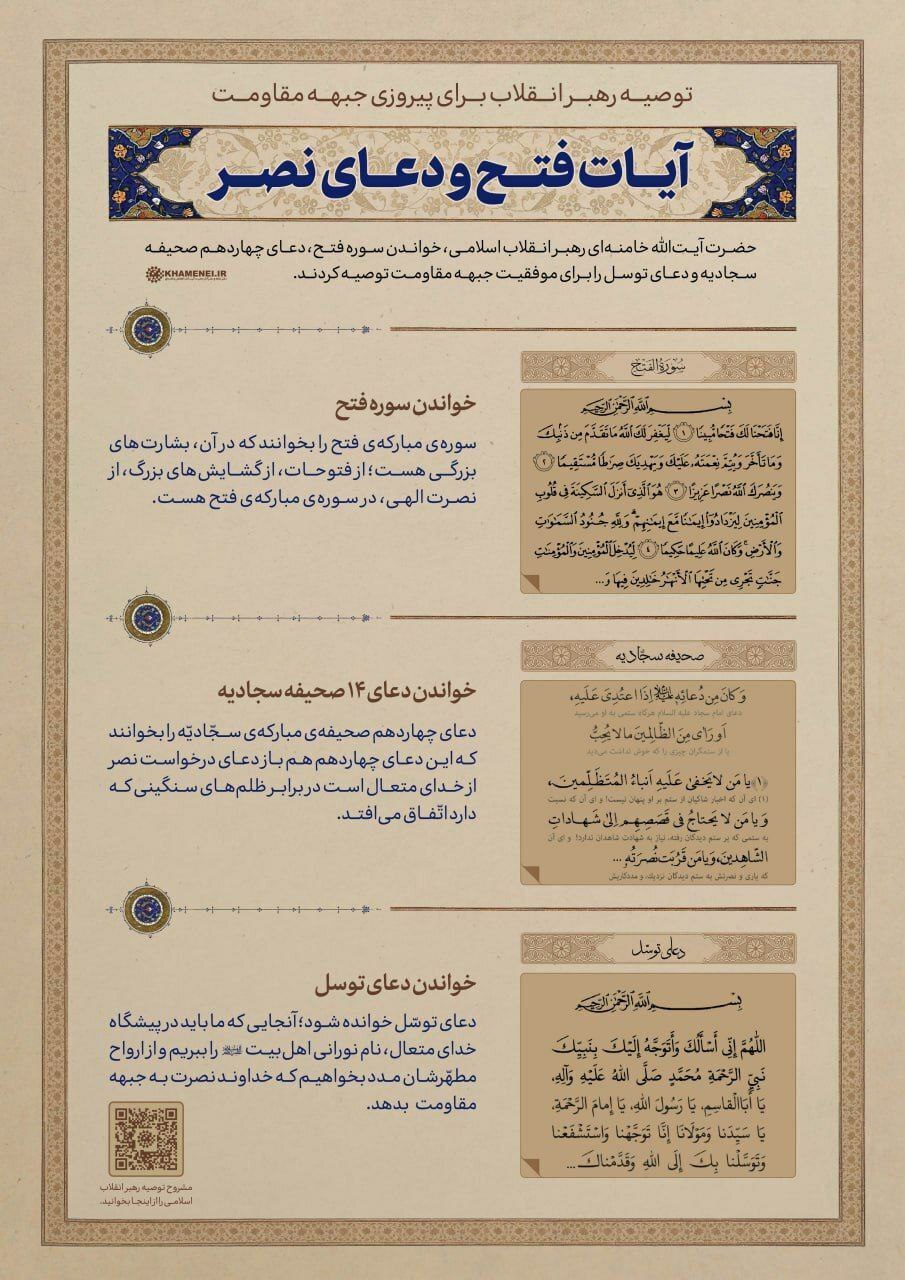 توصیه رهبر انقلاب برای پیروزی جبهه مقاومت
آیات فتح و دعای نصر
حضرت آیت‌الله خامنه‌ای رهبر انقلاب اسلامی، خواندن سوره فتح، دعای چهاردهم صحیفه
سجادیه و دعای توسل را برای موفقیت جبهه مقاومت توصیه کردند.
KHAMENEI.IR
سُورَةُ الفَتْح
بِسْمِ اللَّهِ الرَّحْمَٰنِ الرَّحِيمِ
إِنَّا فَتَحْنَا لَكَ فَتْحًا مُّبِينًا ۝١ لِّيَغْفِرَ لَكَ اللَّهُ مَا تَقَدَّمَ مِن ذَنبِكَ
وَمَا تَأَخَّرَ وَيُتِمَّ نِعْمَتَهُ عَلَيْكَ وَيَهْدِيَكَ صِرَاطًا مُّسْتَقِيمًا ۝٢
وَيَنصُرَكَ اللَّهُ نَصْرًا عَزِيزًا ۝٣ هُوَ الَّذِي أَنزَلَ السَّكِينَةَ فِي قُلُوبِ
الْمُؤْمِنِينَ لِيَزْدَادُوا إِيمَانًا مَّعَ إِيمَانِهِمْ ۗ وَلِلَّهِ جُنُودُ السَّمَاوَاتِ
وَالْأَرْضِ ۚ وَكَانَ اللَّهُ عَلِيمًا حَكِيمًا ۝٤ لِّيُدْخِلَ الْمُؤْمِنِينَ وَالْمُؤْمِنَاتِ
جَنَّاتٍ تَجْرِي مِن تَحْتِهَا الْأَنْهَارُ خَالِدِينَ فِيهَا وَ...
خواندن سوره فتح
سوره‌ی مبارکه‌ی فتح را بخوانند که در آن، بشارت‌های
بزرگی هست؛ از فتوحات، از گشایش‌های بزرگ، از
نصرت الهی، در سوره‌ی مبارکه‌ی فتح هست.
صحیفه سجّادیه
وَكَانَ مِن دُعائِهِ عَلَيْهِ السَّلامُ إِذَا اعتُدِيَ عَلَيهِ،
دعای امام سجاد علیه السلام هرگاه ستمی به او می‌رسید
أَو رَأى مِنَ الظّالِمينَ ما لا يُحِبُّ
یا از ستمگران چیزی را که خوش نداشت می‌دید
﴿١﴾ يا مَن لا يَخفىٰ عَلَيهِ أَنباءُ المُتَظَلِّمينَ،
(۱) ای آن که اخبار شاکیان از ستم بر او پنهان نیست! و ای آن که نسبت
وَ يا مَن لا يَحتاجُ في قَصَصِهِم إِلىٰ شَهاداتِ
به ستمی که بر ستم دیدگان رفته، نیاز به شهادت شاهدان ندارد! و ای آن
الشّاهِدينَ، وَ يا مَن قَرُبَت نُصرَتُهُ...
که یاری و نصرتش به ستم دیدگان نزدیک، و مددکاریش
خواندن دعای ۱۴ صحیفه سجادیه
دعای چهاردهم صحیفه‌ی مبارکه‌ی سجّادیّه را بخوانند
که این دعای چهاردهم هم باز دعای درخواست نصر
از خدای متعال است در برابر ظلم‌های سنگینی که
دارد اتّفاق می‌افتد.
دعای توسّل
بِسْمِ اللَّهِ الرَّحْمَٰنِ الرَّحِيمِ
اللّٰهُمَّ إِنِّي أَسْأَلُكَ وَأَتَوَجَّهُ إِلَيْكَ بِنَبِيِّكَ
نَبِيِّ الرَّحْمَةِ مُحَمَّدٍ صَلَّى اللهُ عَلَيْهِ وَآلِهِ،
يَا أَبَا الْقاسِمِ، يَا رَسُولَ اللهِ، يَا إِمامَ الرَّحْمَةِ،
يَا سَيِّدَنا وَمَوْلَانَا إِنَّا تَوَجَّهْنا وَاسْتَشْفَعْنا
وَتَوَسَّلْنا بِكَ إِلَى اللهِ وَقَدَّمْناكَ...
خواندن دعای توسل
دعای توسّل خوانده شود؛ آنجایی که ما باید در پیشگاه
خدای متعال، نام نورانی اهل‌بیت علیهم‌السلام را ببریم و از ارواح
مطهّرشان مدد بخواهیم که خداوند نصرت به جبهه
مقاومت بدهد.
مشروح توصیه رهبر انقلاب
اسلامی را از اینجا بخوانید.